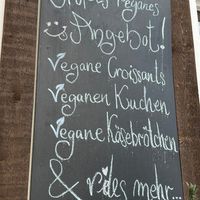 Großes veganes
Angebot!
Vegane Croissants
Veganen Kuchen
Vegane Käsebrötchen
& vieles mehr...